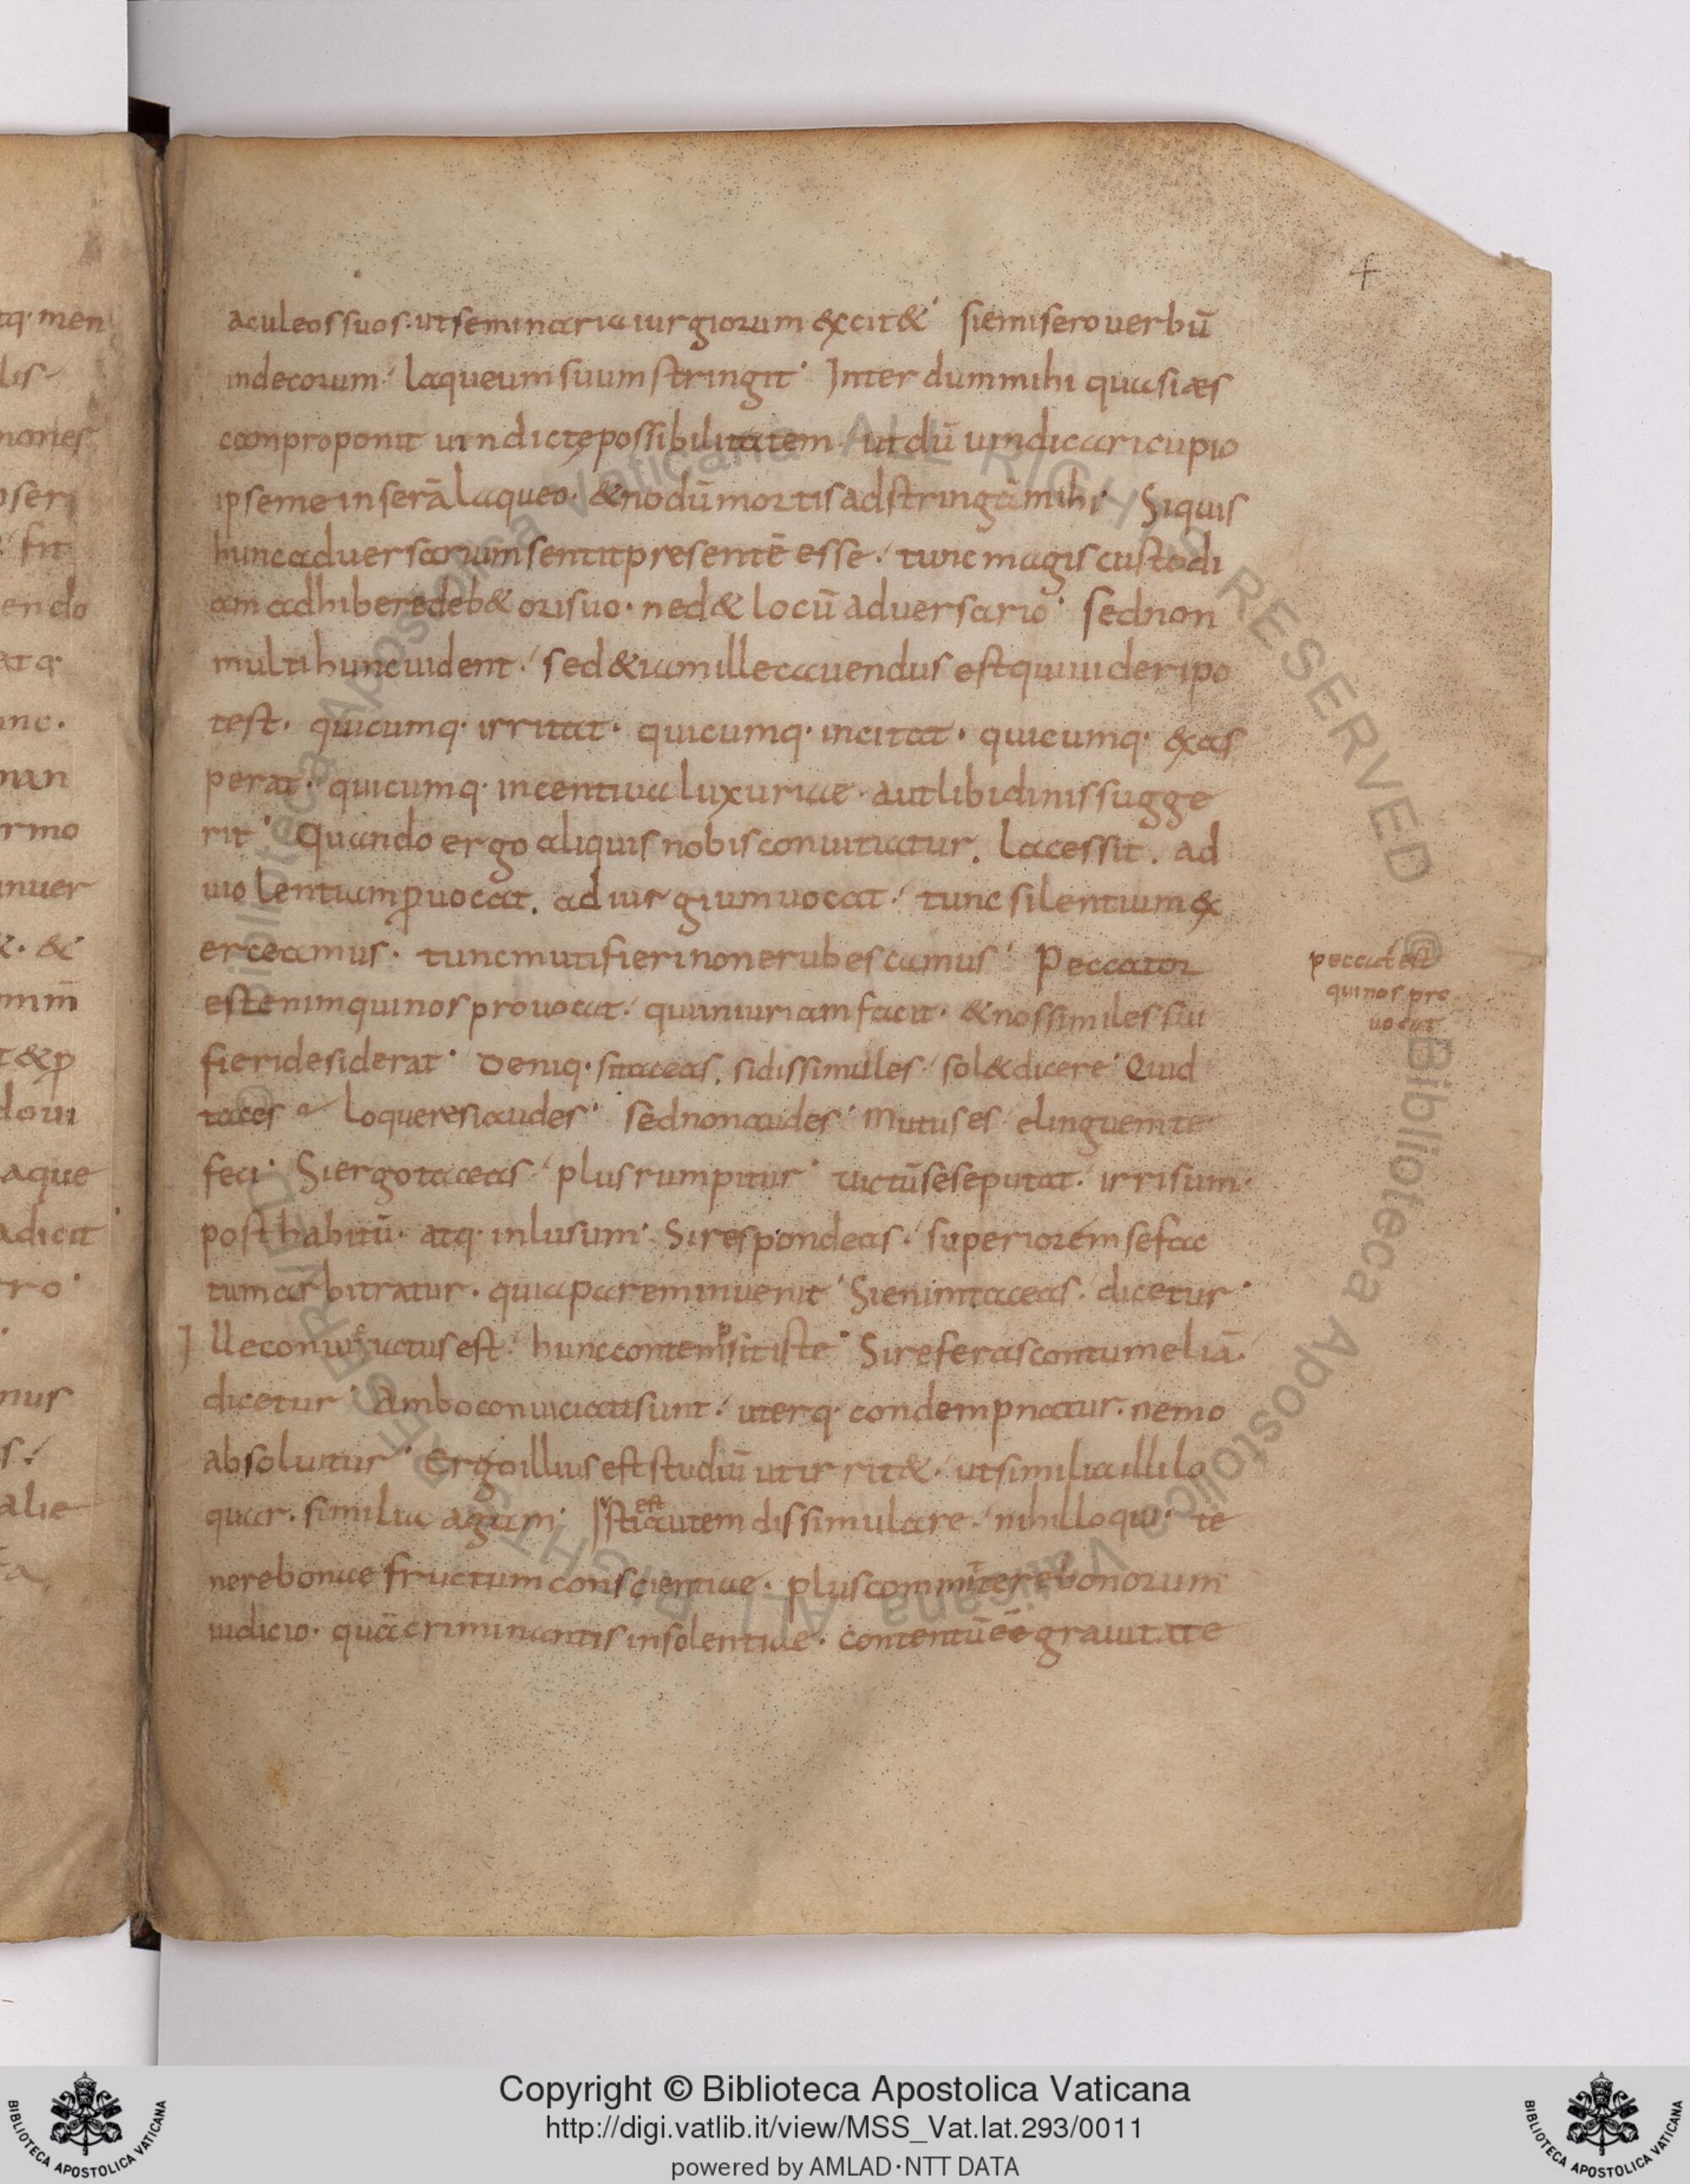 4
aculeos suos· ut seminaria iurgiorum excit&· si emisero uerbū
indecorum· laqueum suum stringit· Inter dum mihi quasi æs
cam proponit uindictę possibilitatem· ut dū uindicari cupio
ipse me inserā laqueo· & nodū mortis adstringā mihi· Siquis
hunc aduersarium sentit presentē esse· tunc magis custodi
am adhibere deb& ori suo· ne d& locū aduersario· sed non
multi hunc uident· sed & iam ille cauendus est qui uideri po
test· quicumq· irritat· quicumq· incitat· quicumq· exas
perat· quicumq· incentiua luxuriae· aut libidinis sugge
rit· Quando ergo aliquis nobis conuitiatur. lacessit. ad
uiolentiam ꝓuocat. ad iurgium uocat· tunc silentium ex
erceamus· tunc muti fieri non erubescamus· Peccator
est enim qui nos prouocat· qui iniuriam facit· & nos similes sui
fieri desiderat· Deniq· si taceas. si dissimules· sol& dicere· Quid
taces loquere si audes· sed non audes· Mutus es elinguem te
feci· Si ergo taceas· plus rumpitur· uictū sese putat· irrisum·
posthabitū· atq· inlusum· Si respondeas· superiorem se fac
tum arbitratur· quia parem inuenit· Si enim taceas· dicetur·
Ille conuitiatus est· hunc contempsit iste· Si referas contumeliā·
dicetur· Ambo conuiciati sunt· uterq· condempnatur· nemo
absoluitur· Ergo illius est studiū ut irrit&· ut similia illi lo
quar· similia agam· Iusti est autem dissimulare· nihil loqui· te
nere bonae fructum conscientiae· plus committere bonorum
iudicio· quā criminantis insolentiae· contentū eē grauitate
peccat̄ est
qui nos pro
uocat
Copyright © Biblioteca Apostolica Vaticana
http://digi.vatlib.it/view/MSS_Vat.lat.293/0011
powered by AMLAD·NTT DATA